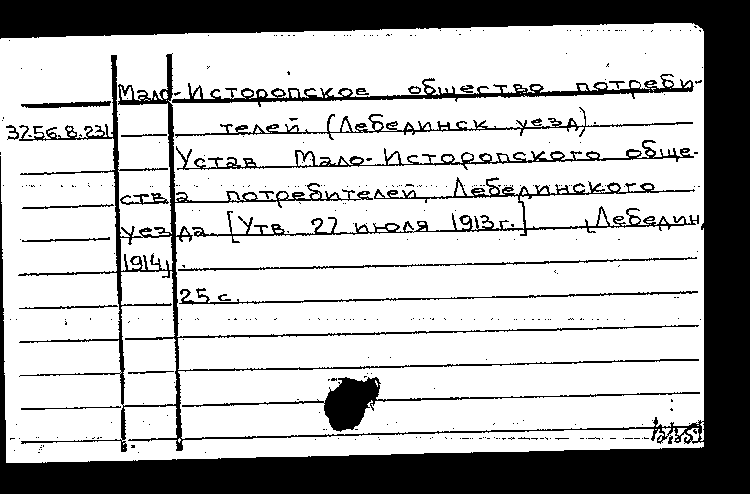 Мало-Исторопское общество потреби-
37.56.8.231. телей. (Лебединск. уезд).
Устав Мало-Исторопского обще-
ства потребителей, Лебединского
уезда. [Утв. 27 июля 1913 г.] [Лебедин,
1914].
25 с.